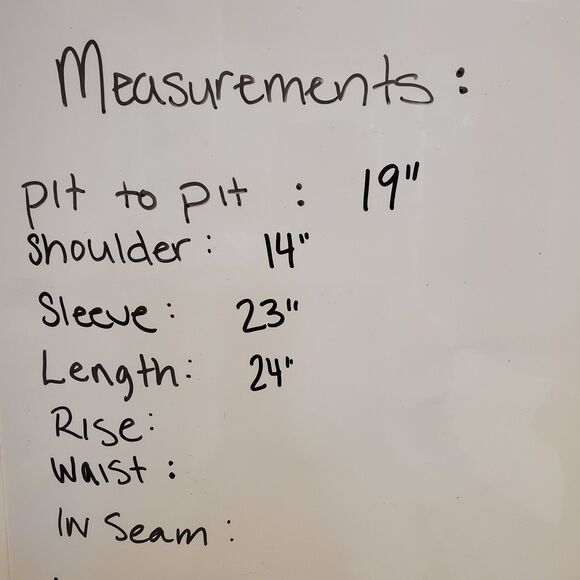 Measurements:
pit to pit : 19"
Shoulder: 14"
Sleeve: 23"
Length: 24"
Rise:
Waist:
In Seam: